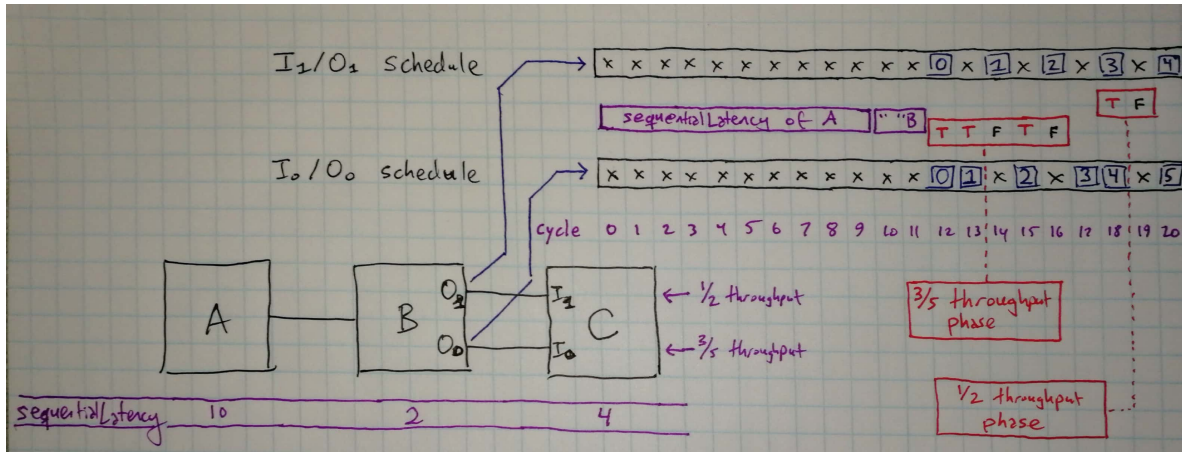 I₁/O₁ schedule
x x x x x x x x x x x x 0 x 1 x 2 x 3 x 4
T F
sequentialLatency of A " " B
T T F T F
I₀/O₀ schedule
x x x x x x x x x x x x 0 1 x 2 x 3 4 x 5
cycle 0 1 2 3 4 5 6 7 8 9 10 11 12 13 14 15 16 17 18 19 20
A
B
O₁
O₀
I₁
I₀
C
← 1/2 throughput
← 3/5 throughput
3/5 throughput
phase
1/2 throughput
phase
sequentialLatency 10 2 4